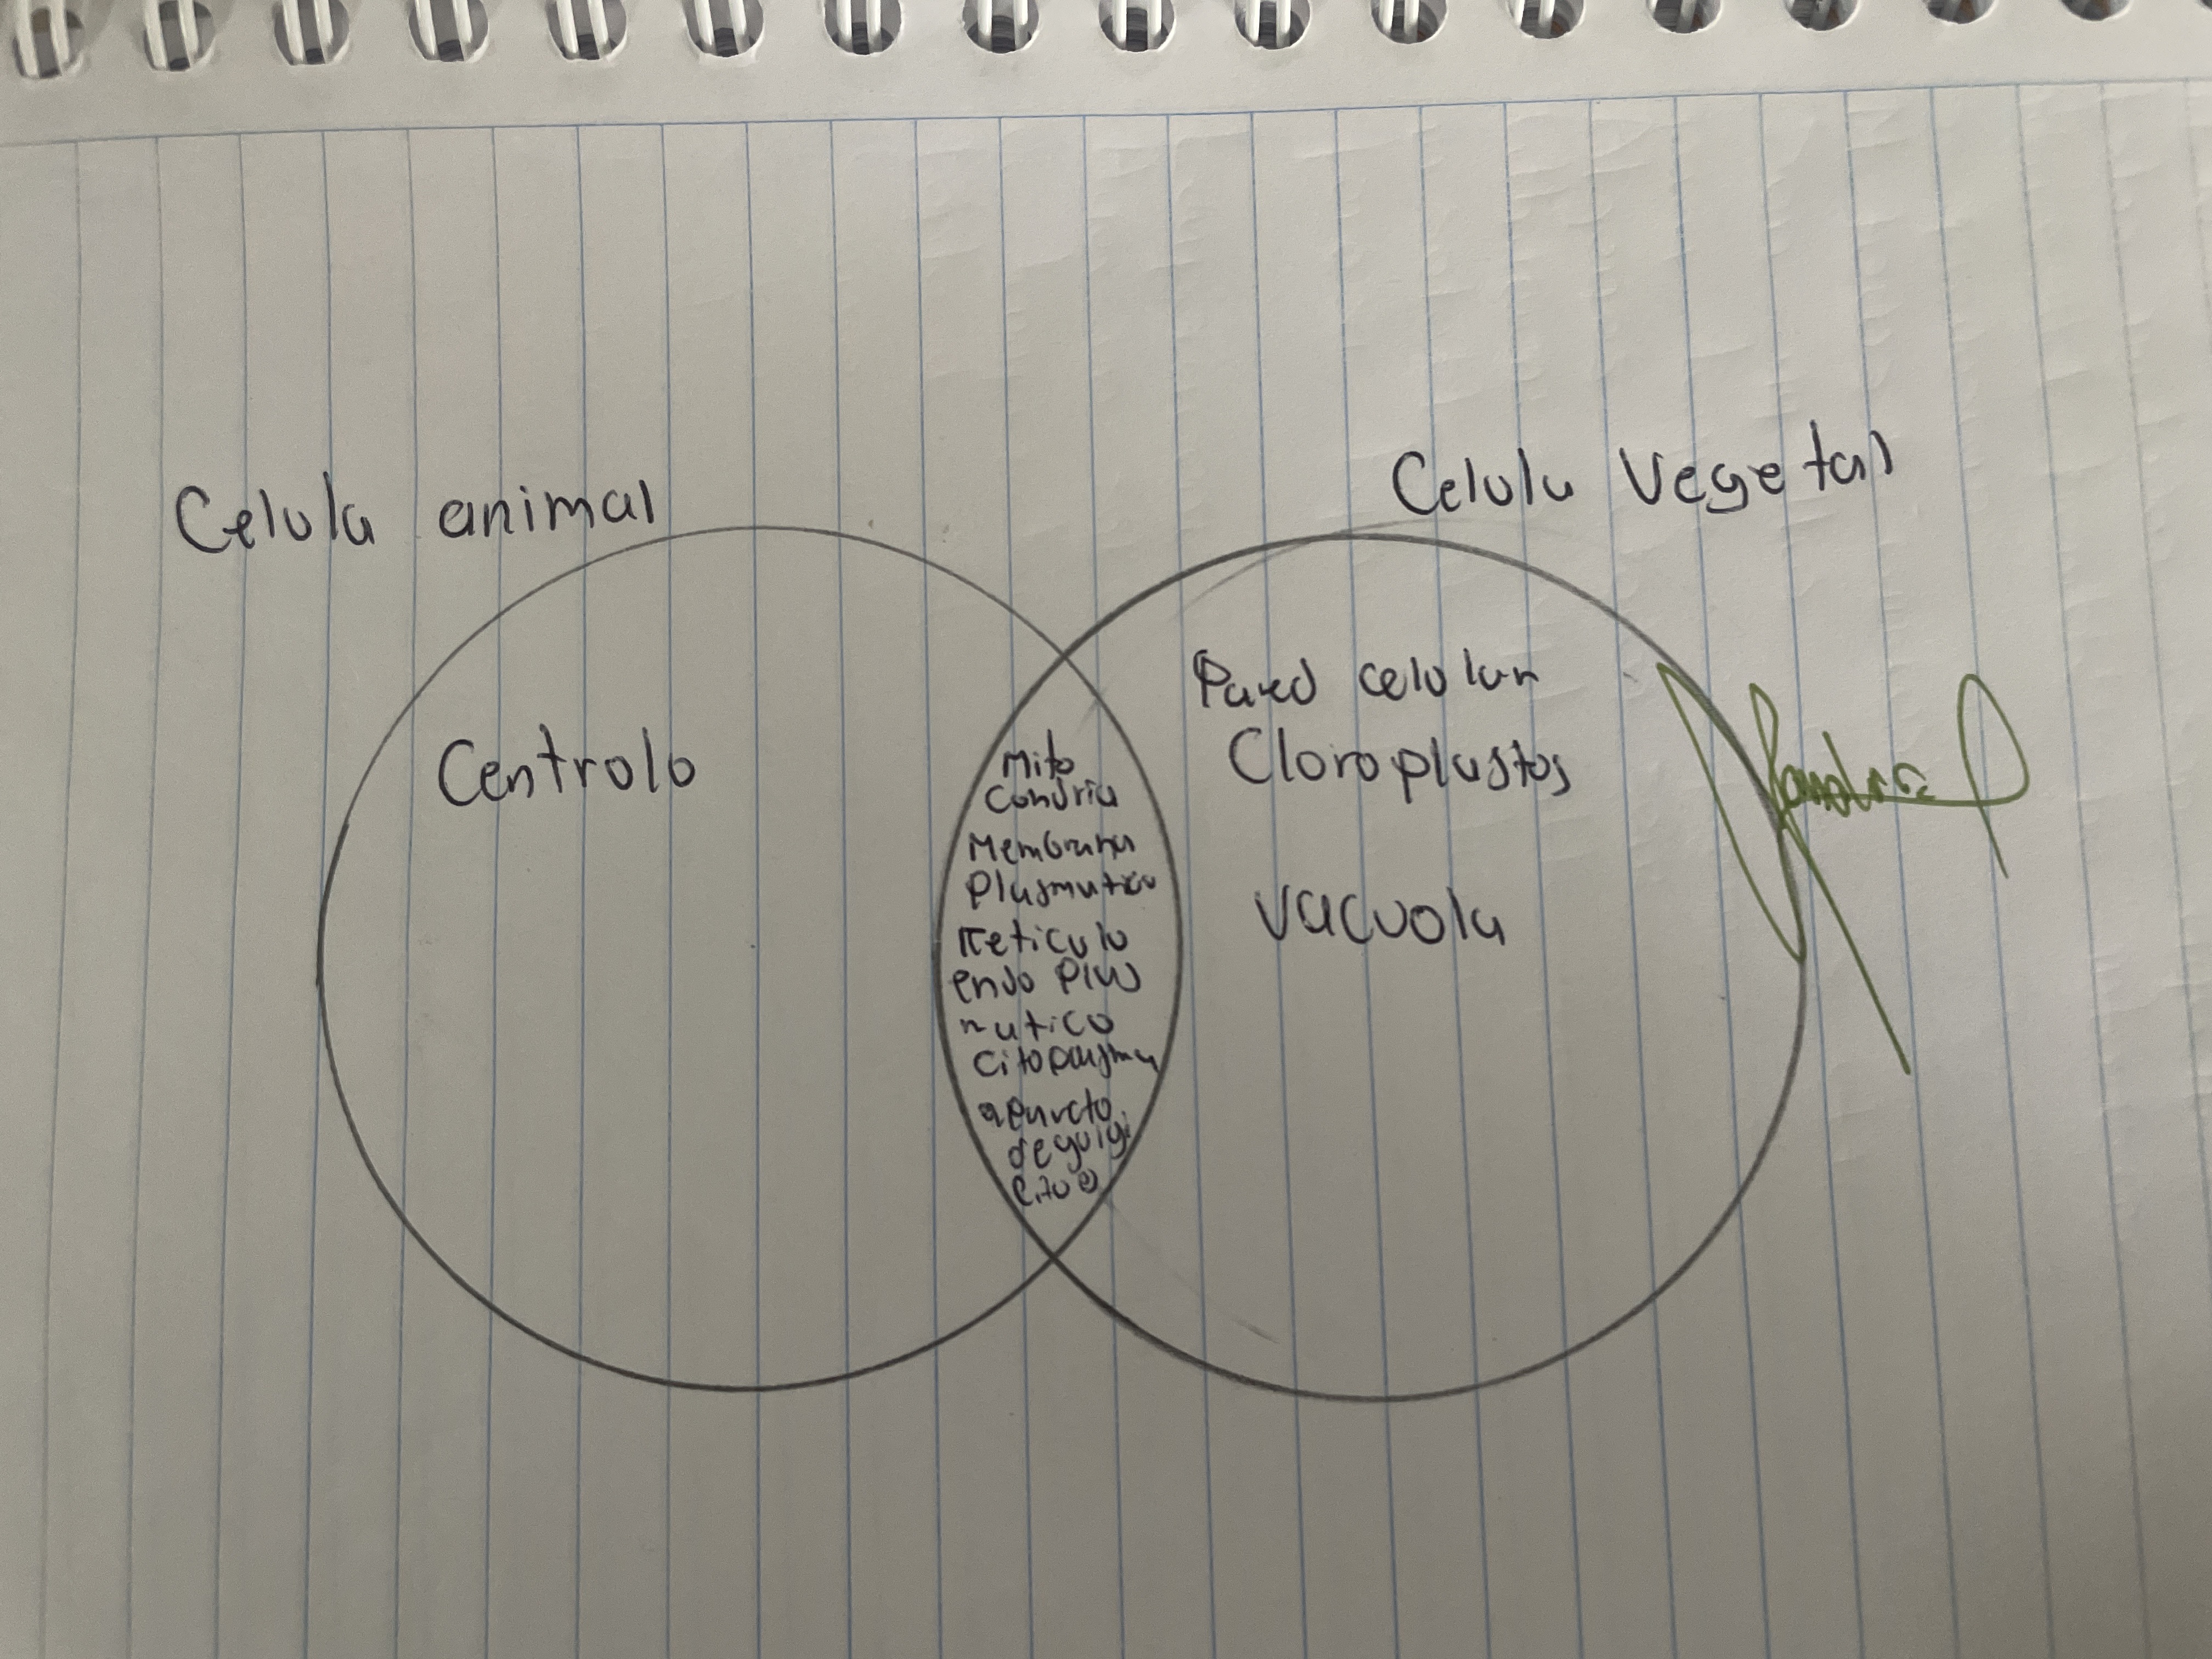 Celula animal
Celula Vegetal
Centrolo
Mito
condria
Membrana
Plasmatica
Reticulo
endo plas
matico
Citoplasma
aparato
de golgi
Pared celular
Cloroplastos
Vacuola